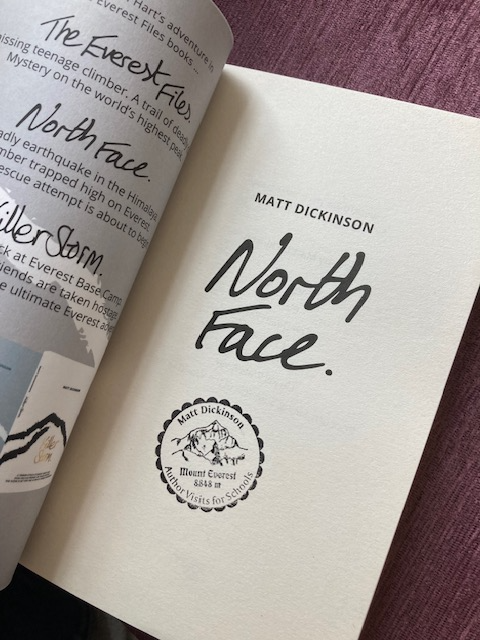 Hart's adventure in
Everest Files books ...
The Everest Files.
missing teenage climber. A trail of deadly
Mystery on the world's highest peak.
North Face.
earthquake in the Himalaya.
trapped high on Everest.
rescue attempt is about to
Killer Storm.
at Everest Base Camp.
are taken hostage
ultimate Everest
MATT DICKINSON
Killer
Storm
MATT DICKINSON
North
Face.
Matt Dickinson
Mount Everest
8848 m
Author Visits for Schools